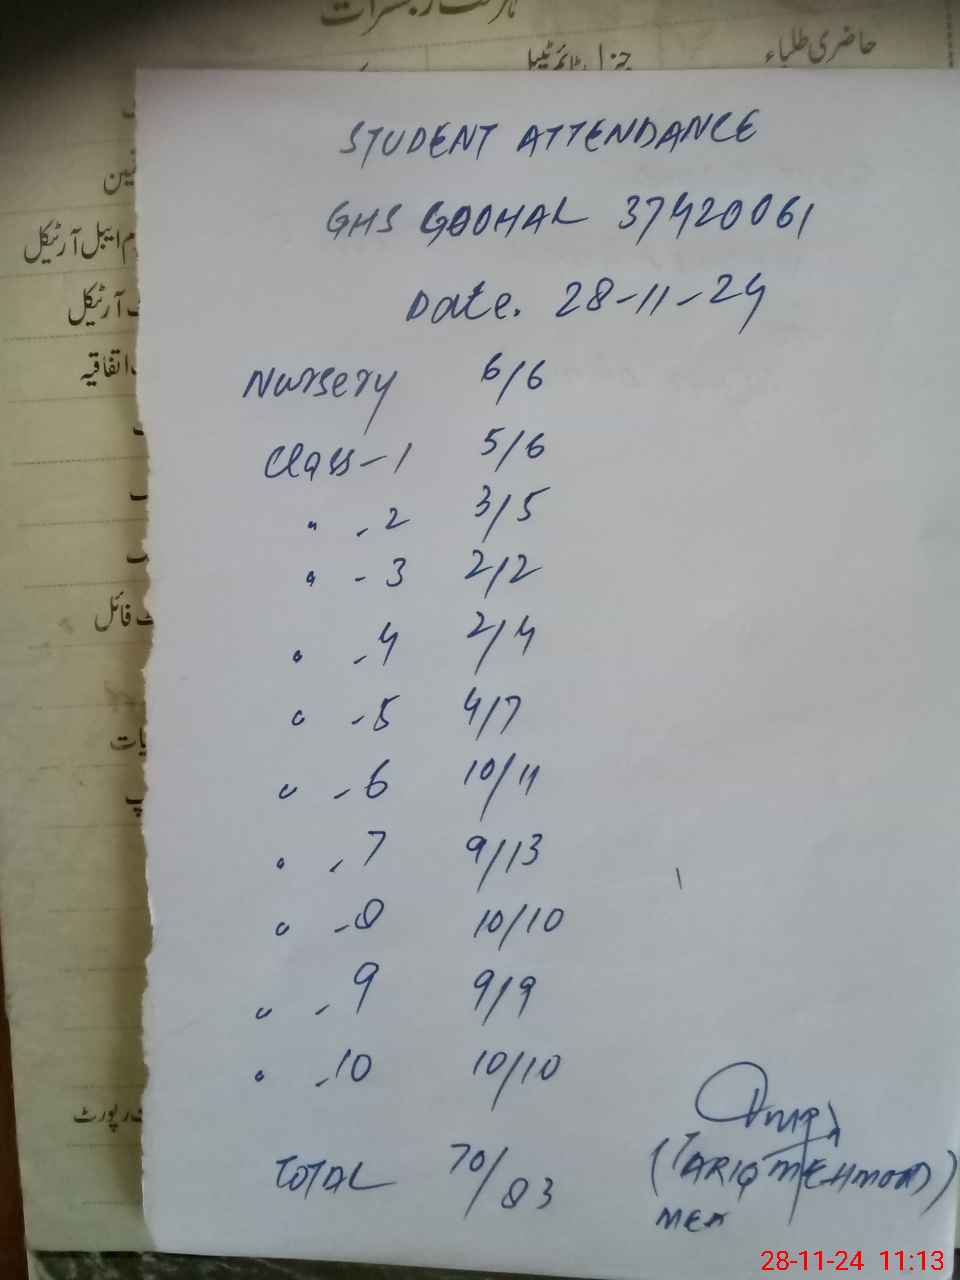 حاضری طلباء
جنرل ٹائم ٹیبل
STUDENT ATTENDANCE
GHS GOOHAL 37420061
Date. 28-11-24
Nursery 6/6
Class-1 5/6
" -2 3/5
" -3 2/2
" -4 2/4
" -5 4/7
" -6 10/11
" -7 9/13
" -8 10/10
" -9 9/9
" -10 10/10
TOTAL 70/83
(TARIQ MEHMOOD)
MEA
آرٹیکل
آرٹیکل
اتفاقیہ
فائل
رپورٹ
28-11-24 11:13